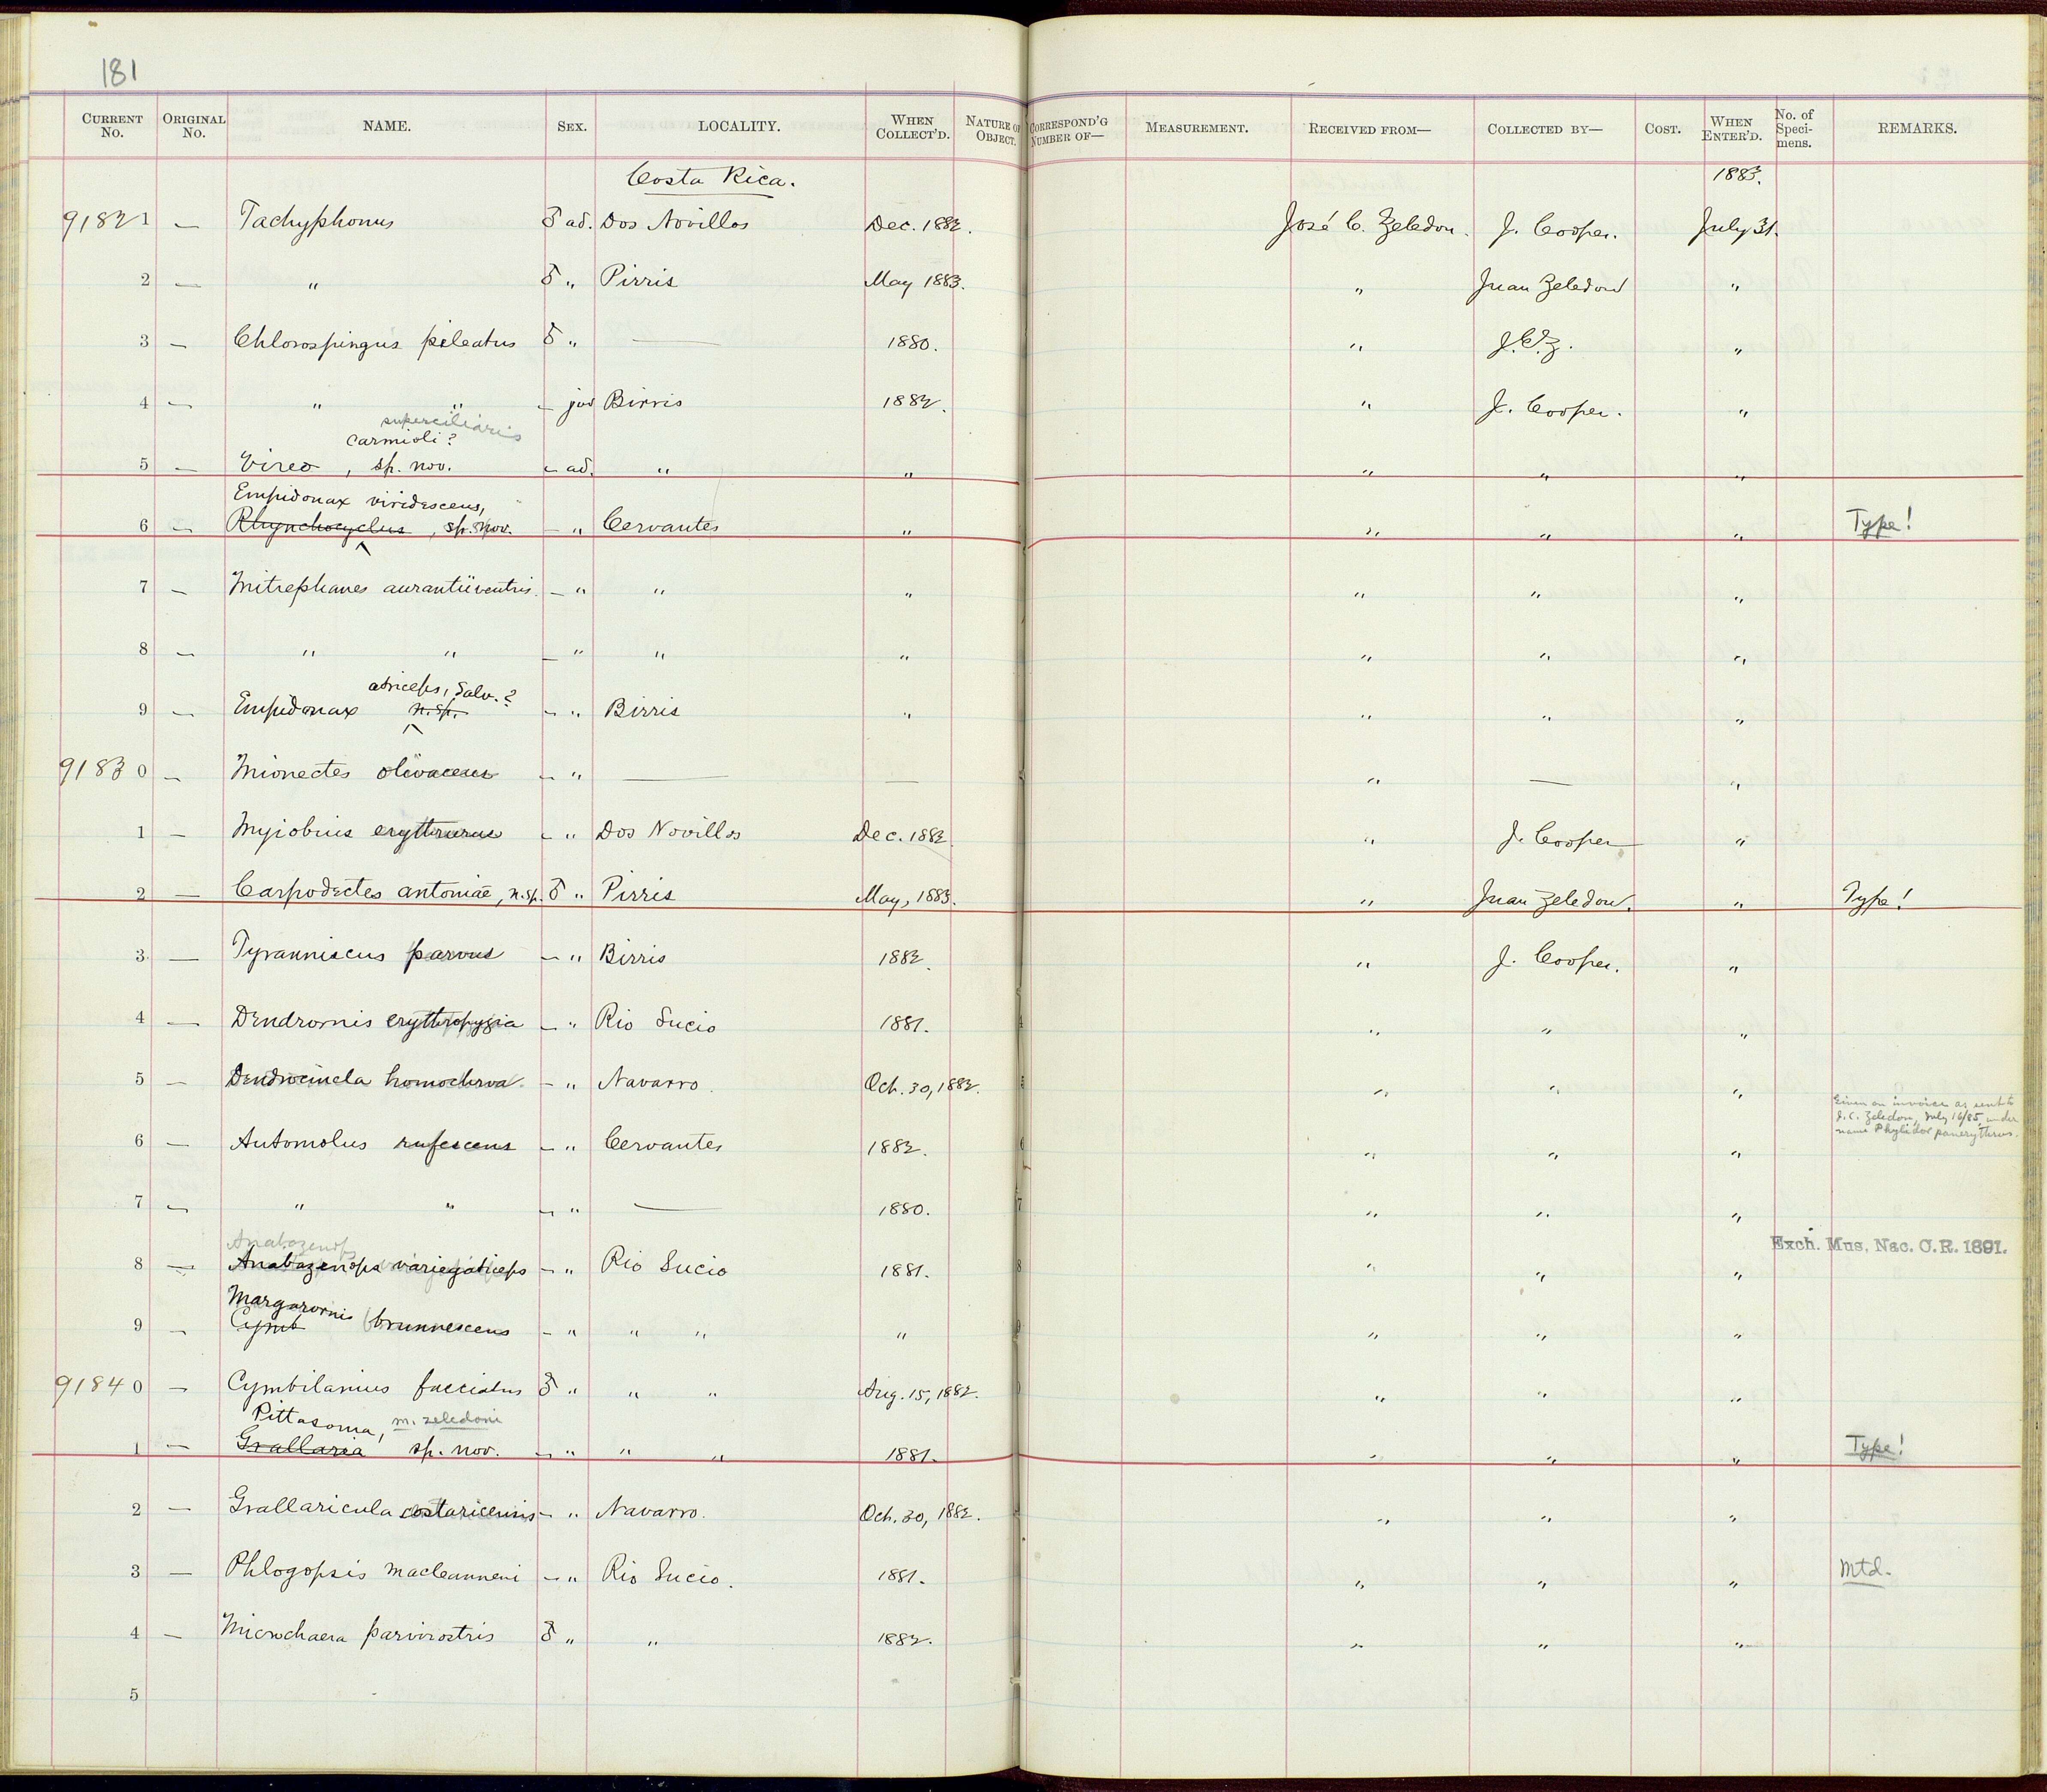 181
CURRENT No. ORIGINAL No. NAME. SEX. LOCALITY. WHEN COLLECT'D. NATURE OF OBJECT. CORRESPOND'G NUMBER OF— MEASUREMENT. RECEIVED FROM— COLLECTED BY— COST. WHEN ENTER'D. No. of Speci-mens. REMARKS.
Costa Rica. 1883.
9182 1 — Tachyphonus ♂ ad. Dos Novillos Dec. 1882. José C. Zeledon. J. Cooper. July 31.
2 — " ♂ " Pirris May 1883. " Juan Zeledon "
3 — Chlorospingus pileatus ♂ " — 1880. " J.C.Z. "
4 — " " — juv Birris 1882. " J. Cooper. "
superciliaris
carmioli?
5 — Vireo, sp. nov. — ad. " " " " "
Empidonax viridescens,
6 — Rhynchocyclus, sp. nov. — " Cervantes " " " " Type!
7 — Mitrephanes aurantiiventris. — " " " " " "
8 — " " — " " " " " "
atriceps, Salv.?
9 — Empidonax n.sp. — " Birris " " " "
9183 0 — Mionectes olivaceus — " — — " — "
1 — Myiobius erythrurus — " Dos Novillos Dec. 1882. " J. Cooper "
2 — Carpodectes antoniae, n.sp. ♂ " Pirris May, 1883. " Juan Zeledon. " Type!
3 — Tyranniscus parvus — " Birris 1882. " J. Cooper. "
4 — Dendrornis erythropygia — " Rio Sucio 1881. " " "
5 — Dendrocincla homochroa — " Navarro. Oct. 30, 1882. " " "
Given on invoice as sent to
J. C. Zeledon, July 16/85, under
name Phylidor panerythrus.
6 — Automolus rufescens — " Cervantes 1882. " " "
7 — " " — " — 1880. " " "
Anabazenops
Exch. Mus. Nac. C.R. 1891.
8 — Anabazenops variegaticeps — " Rio Sucio 1881. " " "
Margarornis
9 — Cymb brunnescens — " " " " " " "
9184 0 — Cymbilanius fasciatus ♂ " " " Aug. 15, 1882. " " "
Pittasoma, m. zeledoni
1 — Grallaria sp. nov. — " " " 1881. " " " Type!
2 — Grallaricula costaricensis — " Navarro. Oct. 30, 1882. " " "
3 — Phlogopsis macleanneni — " Rio Sucio. 1881. " " " Mtd.
4 — Microchaera parvirostris ♂ " " 1882. " " "
5